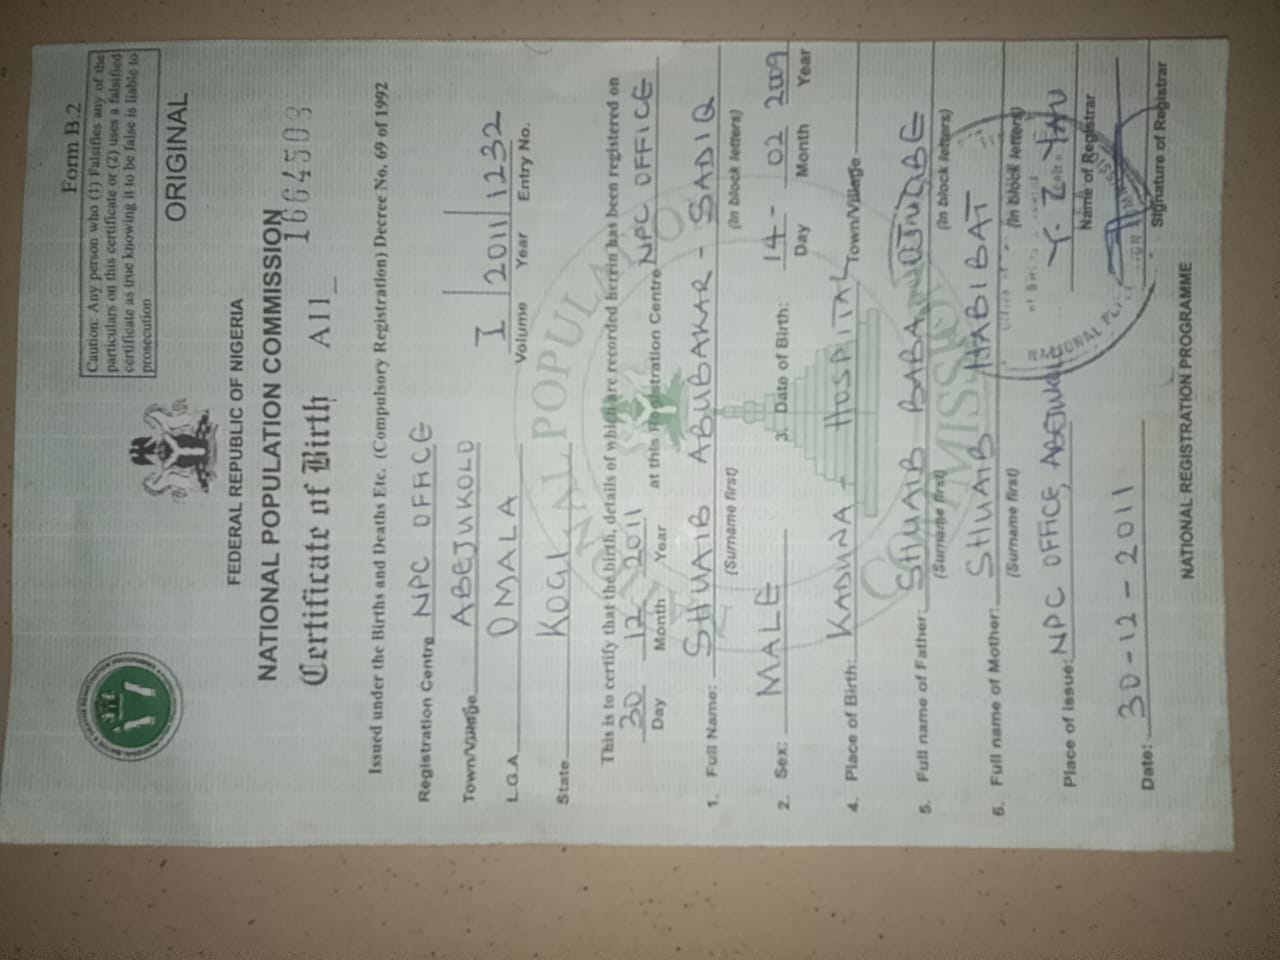 Form B.2
Caution: Any person who (1) Falsifies any of the
particulars on this certificate or (2) uses a falsified
certificate as true knowing it to be false is liable to
prosecution
ORIGINAL
FEDERAL REPUBLIC OF NIGERIA
NATIONAL POPULATION COMMISSION
Certificate of Birth A11 1664503
Issued under the Births and Deaths Etc. (Compulsory Registration) Decree No. 69 of 1992
Registration Centre NPC OFFICE
Town/Village ABEJUKOLO I 2011 1232
Volume Year Entry No.
L.G.A OMALA
State KOGI
This is to certify that the birth, details of which are recorded herein has been registered on
30 12 2011 at this Registration Centre NPC OFFICE
Day Month Year
1. Full Name: SHUAIB ABUBAKAR - SADIQ
(Surname first) (In block letters)
2. Sex: MALE 3. Date of Birth: 14- 02 2009
Day Month Year
4. Place of Birth: KADUNA - HOSPITAL Town/Village
5. Full name of Father: SHUAIB BABA
(Surname first) (In block letters)
6. Full name of Mother: SHUAIB HABIBAT
(Surname first) (In block letters)
Place of issue: NPC OFFICE, ABEJUKOLO Y. Z
Name of Registrar
Date: 30-12-2011
Signature of Registrar
NATIONAL REGISTRATION PROGRAMME
NATIONAL POPULATION COMMISSION